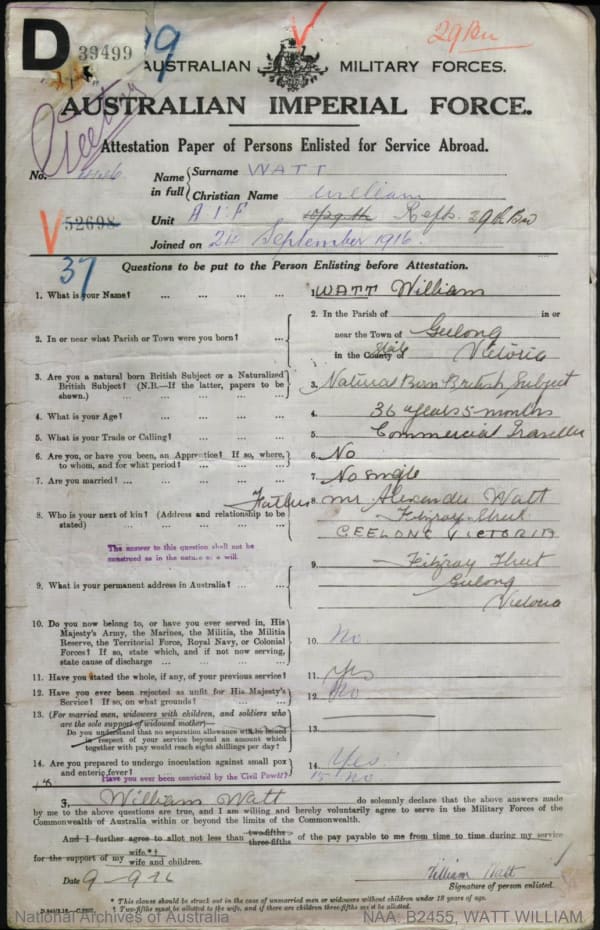 D 39499
29 Bn
AUSTRALIAN MILITARY FORCES.
AUSTRALIAN IMPERIAL FORCE.
Attestation Paper of Persons Enlisted for Service Abroad.
No.
Name in full { Surname WATT
Christian Name William
52698
Unit A I F Refts. 29th Bn
Joined on 24 September 1916.
37
Questions to be put to the Person Enlisting before Attestation.
1. What is your Name? ... ... ... ... 1. WATT William
2. In or near what Parish or Town were you born? ... 2. In the Parish of in or
near the Town of Geelong
in the County of State Victoria
3. Are you a natural born British Subject or a Naturalized
British Subject? (N.B.—If the latter, papers to be
shown.) ... ... ... ... 3. Natural Born British Subject
4. What is your Age? ... ... ... ... 4. 36 years 5 months
5. What is your Trade or Calling? ... ... ... 5. Commercial Traveller
6. Are you, or have you been, an Apprentice? If so, where,
to whom, and for what period? ... ... ... 6. No
7. Are you married? ... ... ... ... 7. No single
8. Who is your next of kin? (Address and relationship to be
stated) ... ... ... ... Father 8. Mr Alexander Watt
Fitzroy Street
GEELONG VICTORIA
The answer to this question shall not
be construed as in the nature of a will.
9. What is your permanent address in Australia? ... ... 9. Fitzroy Street
Geelong
Victoria
10. Do you now belong to, or have you ever served in, His
Majesty's Army, the Marines, the Militia, the Militia
Reserve, the Territorial Force, Royal Navy, or Colonial
Forces? If so, state which, and if not now serving,
state cause of discharge ... ... ... 10. No.
11. Have you stated the whole, if any, of your previous service? 11. Yes
12. Have you ever been rejected as unfit for His Majesty's
Service? If so, on what grounds? ... ... 12. No
13. (For married men, widowers with children, and soldiers who
are the sole support of widowed mother)—
Do you understand that no separation allowance will be issued
in respect of your service beyond an amount which
together with pay would reach eight shillings per day? 13.
14. Are you prepared to undergo inoculation against small pox
and enteric fever? 14. Yes
15. Have you ever been convicted by the Civil Power? 15 No
I, William Watt do solemnly declare that the above answers made
by me to the above questions are true, and I am willing and hereby voluntarily agree to serve in the Military Forces of the
Commonwealth of Australia within or beyond the limits of the Commonwealth.
And I further agree to allot not less than two-fifths three-fifths of the pay payable to me from time to time during my service
for the support of my wife.*† wife and children.
Date 9-9-16 William Watt
Signature of person enlisted.
* This clause should be struck out in the case of unmarried men or widowers without children under 18 years of age.
† Two-fifths must be allotted to the wife, and if there are children three-fifths must be allotted.
National Archives of Australia NAA: B2455, WATT WILLIAM